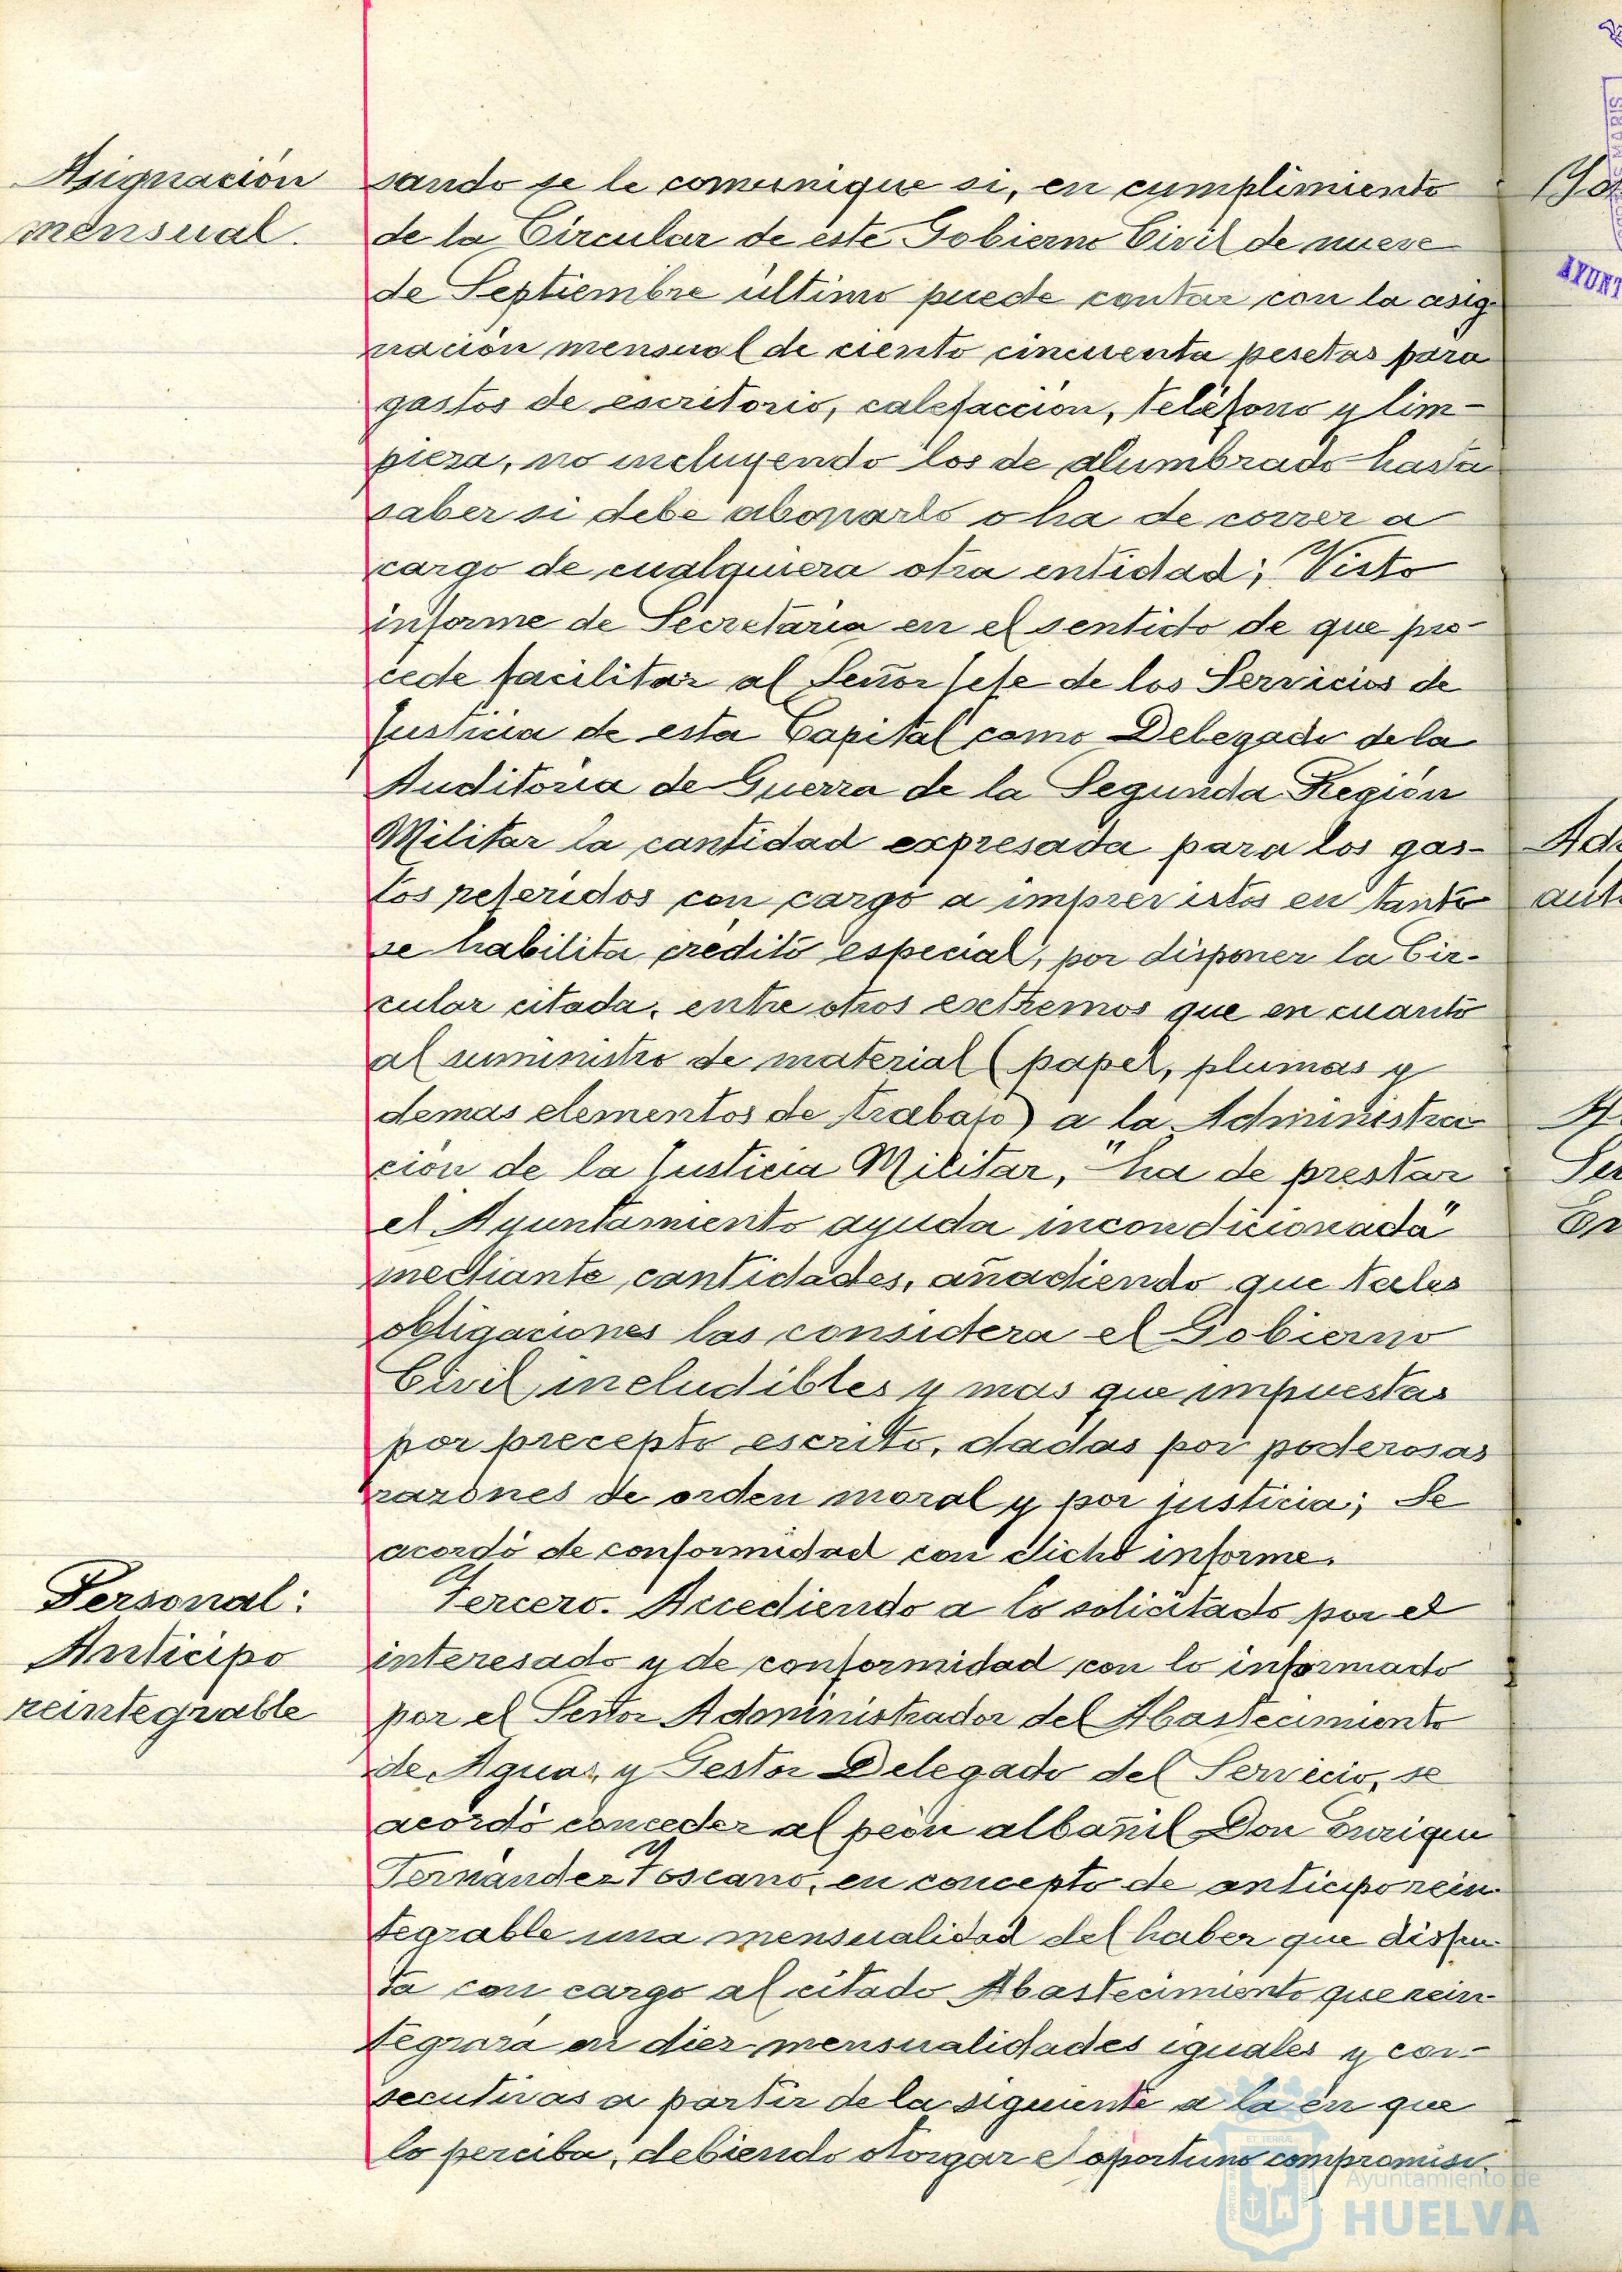 Asignación
mensual.
sando se le comunique si, en cumplimiento
de la Circular de este Gobierno Civil de nueve
de Septiembre último puede contar con la asig-
nación mensual de ciento cincuenta pesetas para
gastos de escritorio, calefacción, teléfono y lim-
pieza, no incluyendo los de alumbrado hasta
saber si debe abonarlo o ha de correr a
cargo de cualquiera otra entidad; Visto
informe de Secretaría en el sentido de que pro-
cede facilitar al Señor Jefe de los Servicios de
Justicia de esta Capital como Delegado de la
Auditoría de Guerra de la Segunda Región
Militar la cantidad expresada para los gas-
tos referidos con cargo a imprevistos en tanto
se habilita crédito especial, por disponer la Cir-
cular citada, entre otros extremos que en cuanto
al suministro de material (papel, plumas y
demas elementos de trabajo) a la Administra
ción de la Justicia Militar, "ha de prestar
el Ayuntamiento ayuda incondicionada"
mediante cantidades, añadiendo que tales
obligaciones las considera el Gobierno
Civil ineludibles y mas que impuestas
por precepto escrito, dadas por poderosas
razones de orden moral y por justicia; Se
acordó de conformidad con dicho informe.
Personal:
Anticipo
reintegrable
Tercero. Accediendo a lo solicitado por el
interesado y de conformidad con lo informado
por el Señor Administrador del Abastecimiento
de Aguas y Gestor Delegado del Servicio, se
acordó conceder al peón albañil Don Enrique
Fernández Toscano, en concepto de anticipo rein-
tegrable una mensualidad del haber que disfru-
ta con cargo al citado Abastecimiento que rein-
tegrará en diez mensualidades iguales y con-
secutivas a partir de la siguiente a la en que
lo perciba, debiendo otorgar el oportuno compromiso.
AYUNT
Ayuntamiento de
HUELVA